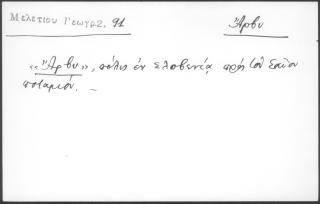 Μελετίου Γεωγρ. 91
Ἄρβυ
«Ἄρβυ», πόλις ἐν Σλοβενίᾳ πρὸς τὸν Σαῦον
ποταμόν. –